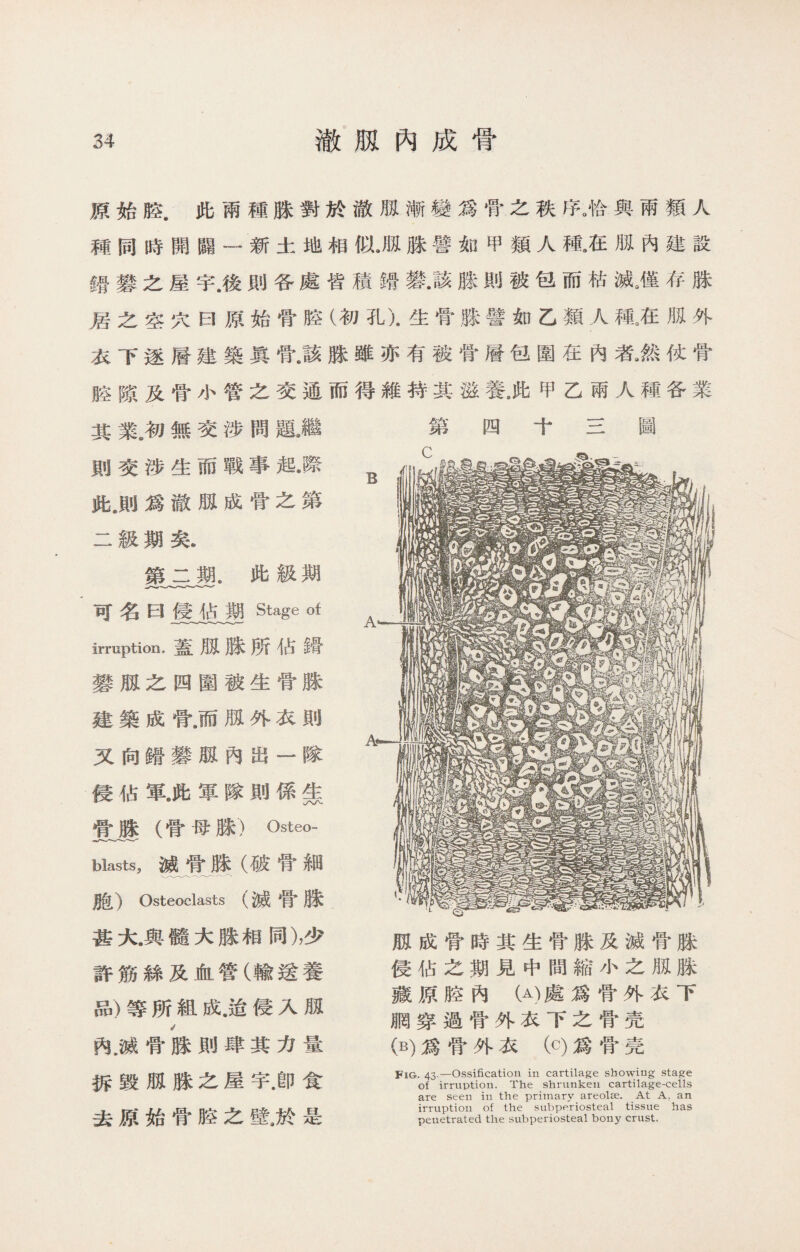 34
澈䐃內成骨
原始腔. 此兩種䏭對於澈䐃漸變爲骨之秩序。恰與兩類人
種同時開闢一新土地相似.䐃䏭譬如甲類人種。在䐃內建設
鎝礬之屋宇.後則各處皆積鎝礬.該䏭則被包而枯滅。僅存䏭
居之空穴曰原始骨腔(初孔). 生骨䏭譬如乙類人種。在䐃外
衣下逐層建築眞骨.該䏭雖亦有被骨層包圍在內者。然仗骨
腔隙及骨小管之交通而得維持其滋養。此甲乙兩人種各業
其業。初無交涉問題。繼
則交涉生而戰事起.際
此.則爲澈䐃成骨之第
二級期矣.
第二期. 此級期
可名曰侵佔期 Stage of
irruption. 蓋䐃䏭所佔
礬䐃之四圍被生骨䏭
建築成骨.而䐃外衣則
又向 礬䐃內出一隊
侵佔軍.此軍隊則係生
骨䏭 (骨母䏭) Osteo-
blasts, 滅骨䏭(破骨細
胞) Osteoclasts (滅骨䏭
甚大.與髓大䏭相同),少
許筋絲及血管(輸送養
品)等所組成.迨侵入䐃
內.滅骨䏭則肆其力量
拆毀䐃䏭之屋宇.卽食
去原始骨腔之壁。於是
第四十三圖
C
B
A
A
䐃成骨時其生骨䏭及滅骨䏭
侵佔之期見中間縮小之䐃䏭
藏原腔內 (A)處爲骨外衣下
膶穿過骨外衣下之骨壳
(B)爲骨外衣 (C)爲骨壳
FIG. 43.—Ossification in cartilage showing stage
of irruption. The shrunken cartilage-cells
are seen in the primary areolæ. At A, an
irruption of the subperiosteal tissue has
penetrated the subperiosteal bony crust.